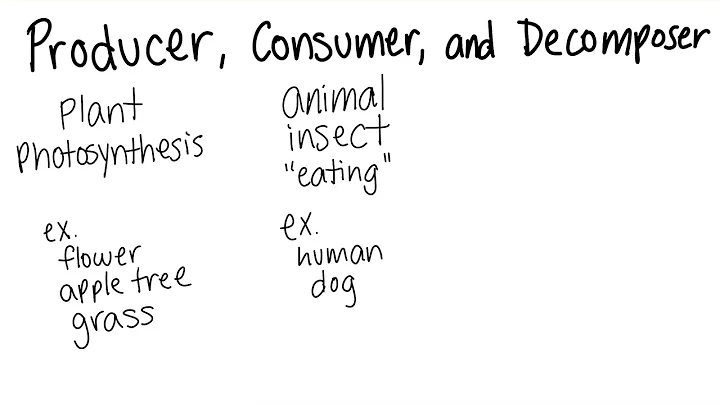 Producer, Consumer, and Decomposer
Plant
Photosynthesis
ex.
flower
apple tree
grass
animal
insect
"eating"
ex.
human
dog